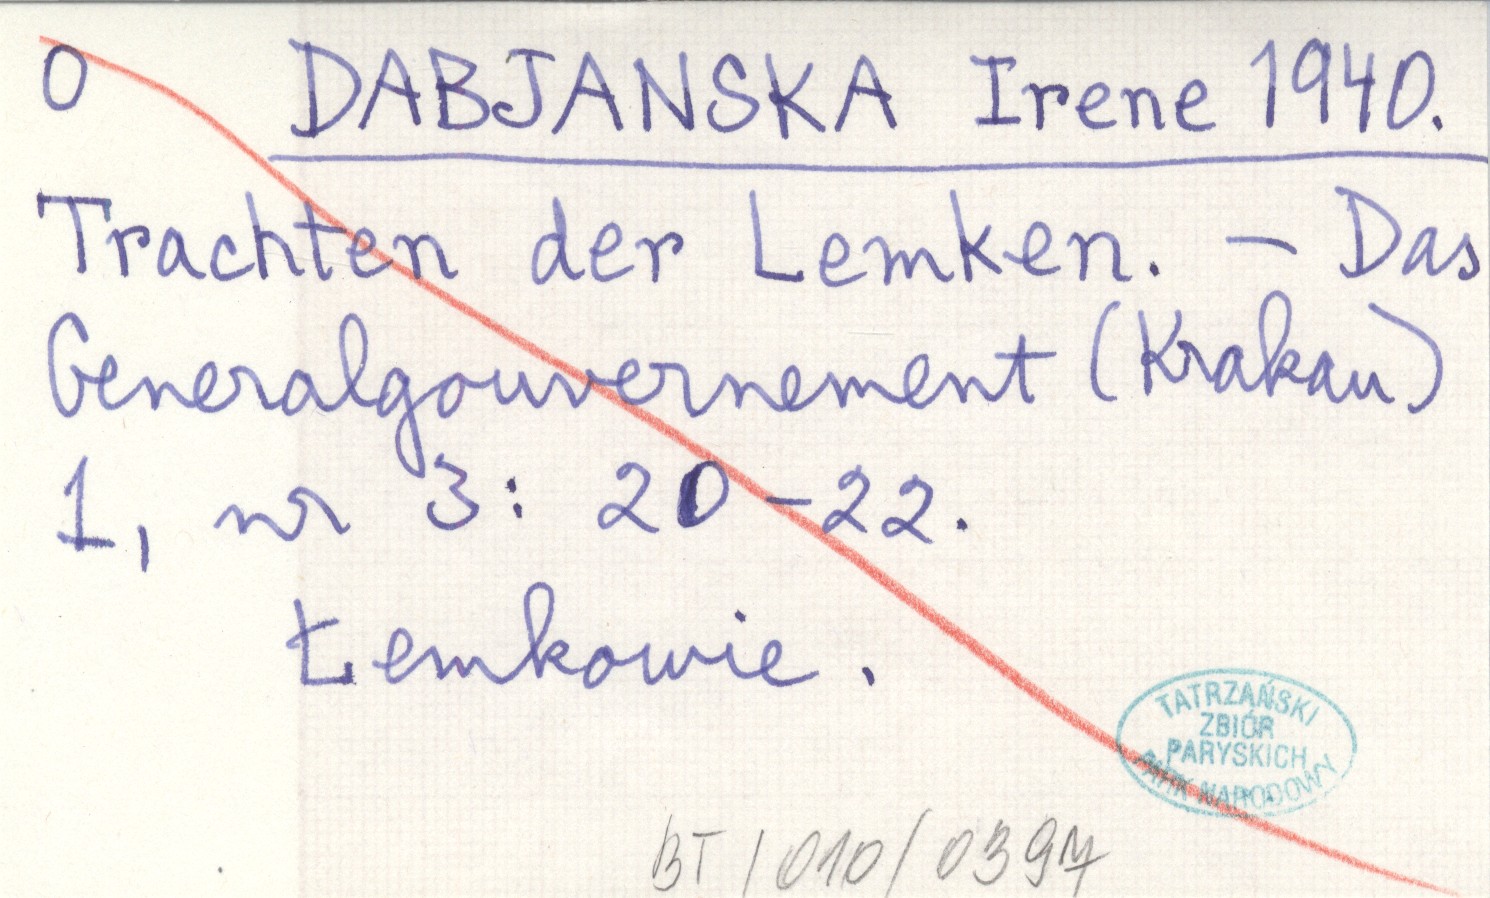 0 DABJANSKA Irene 1940.
Trachten der Lemken. – Das
Generalgouvernement (Krakau)
1, nr 3: 20–22.
Łemkowie.
TATRZAŃSKI
ZBIÓR
PARYSKICH
PARK NARODOWY
BT/010/0397